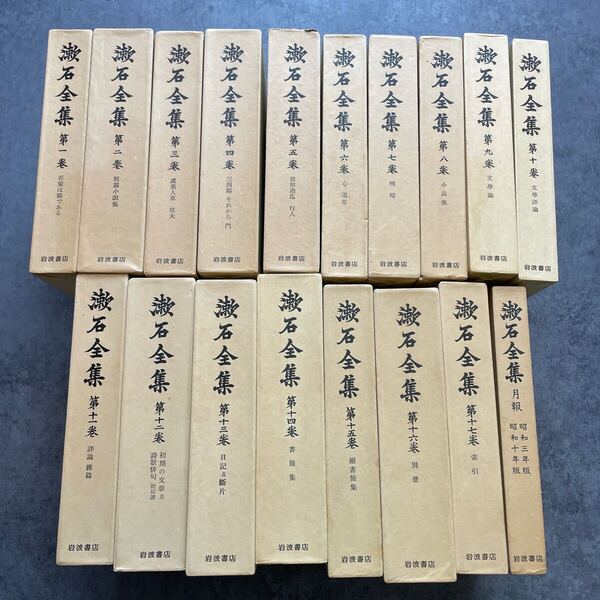 漱石全集 第一巻 吾輩は猫である 岩波書店
漱石全集 第二巻 短篇小説集 岩波書店
漱石全集 第三巻 虞美人草 坑夫 岩波書店
漱石全集 第四巻 三四郎 それから 門 岩波書店
漱石全集 第五巻 彼岸過迄 行人 岩波書店
漱石全集 第六巻 心 道草 岩波書店
漱石全集 第七巻 明暗 岩波書店
漱石全集 第八巻 小品集 岩波書店
漱石全集 第九巻 文學論 岩波書店
漱石全集 第十巻 文學評論 岩波書店
漱石全集 第十一巻 評論 雜篇 岩波書店
漱石全集 第十二巻 初期の文章及 詩歌俳句 附印譜 岩波書店
漱石全集 第十三巻 日記及斷片 岩波書店
漱石全集 第十四巻 書簡集 岩波書店
漱石全集 第十五巻 續書簡集 岩波書店
漱石全集 第十六巻 別册 岩波書店
漱石全集 第十七巻 索引 岩波書店
漱石全集 月報 昭和三年版 昭和十年版 岩波書店